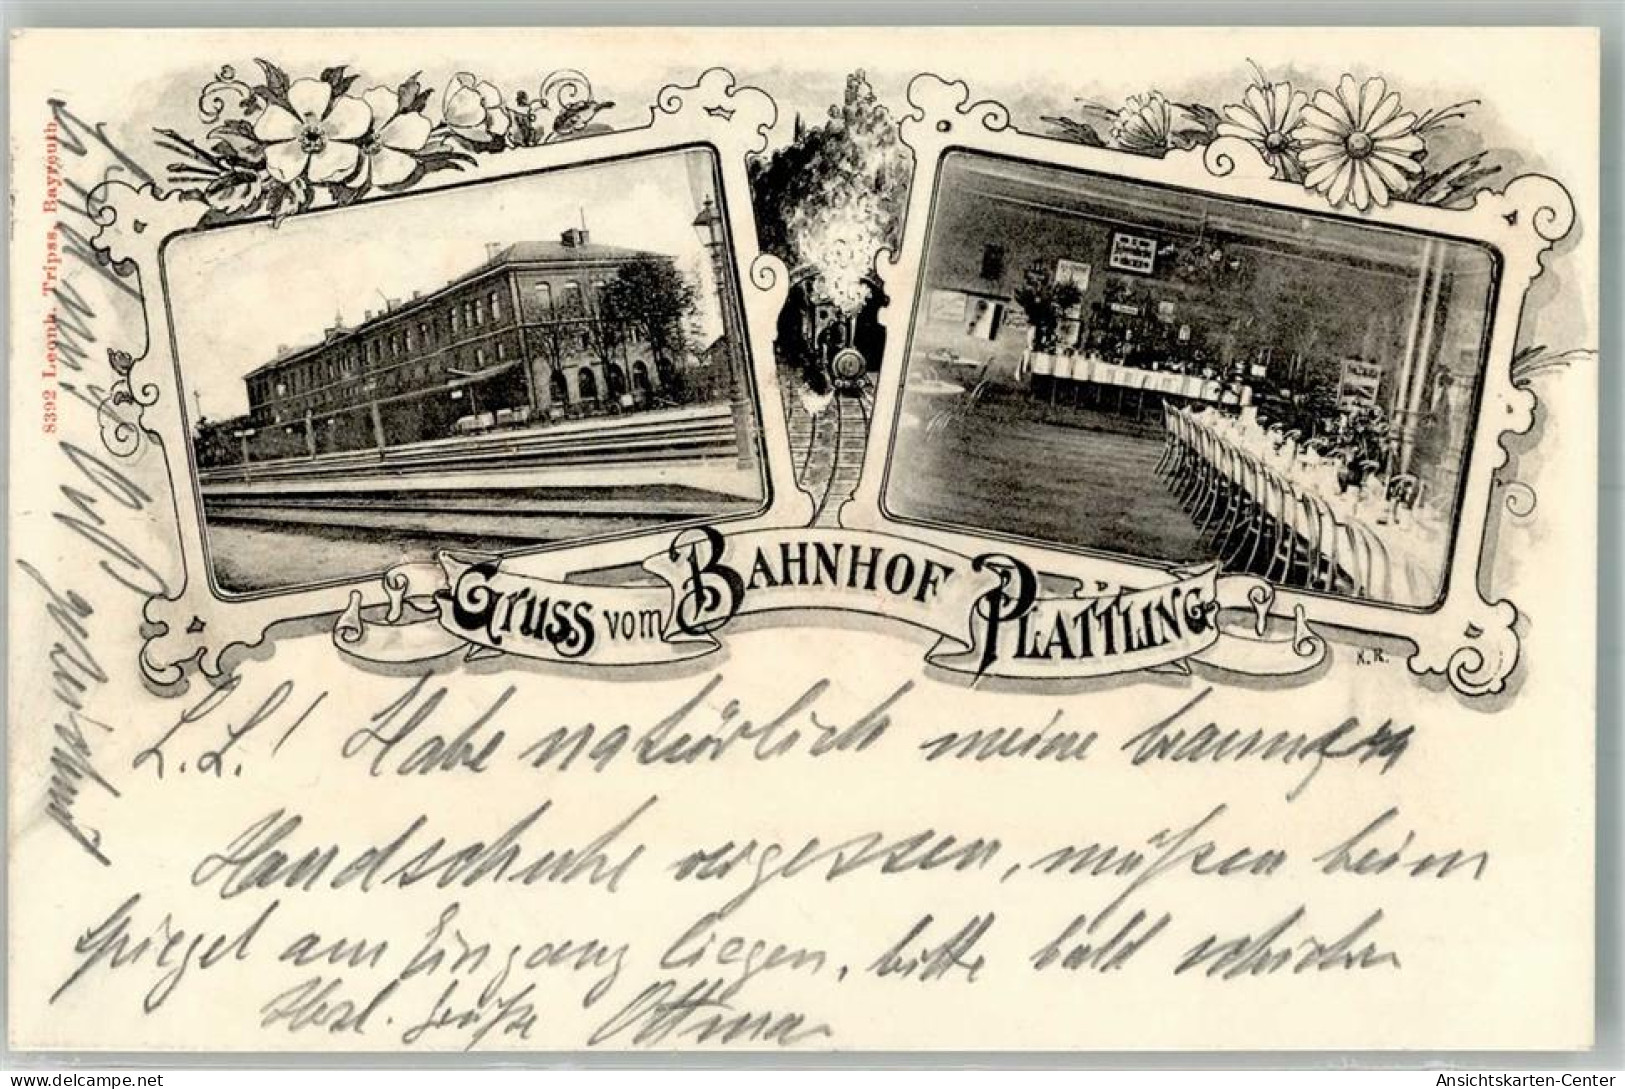 8392 Leonh. Tripss, Bayreuth.
Gruss vom Bahnhof Plattling
K.R.
L.L.! Habe natürlich meine braunen
Handschuhe vergessen, müßen beim
Spiegel am Eingang liegen, bitte bald schicken
Herzl. Grüße Ottmar
Ansichtskarten-Center